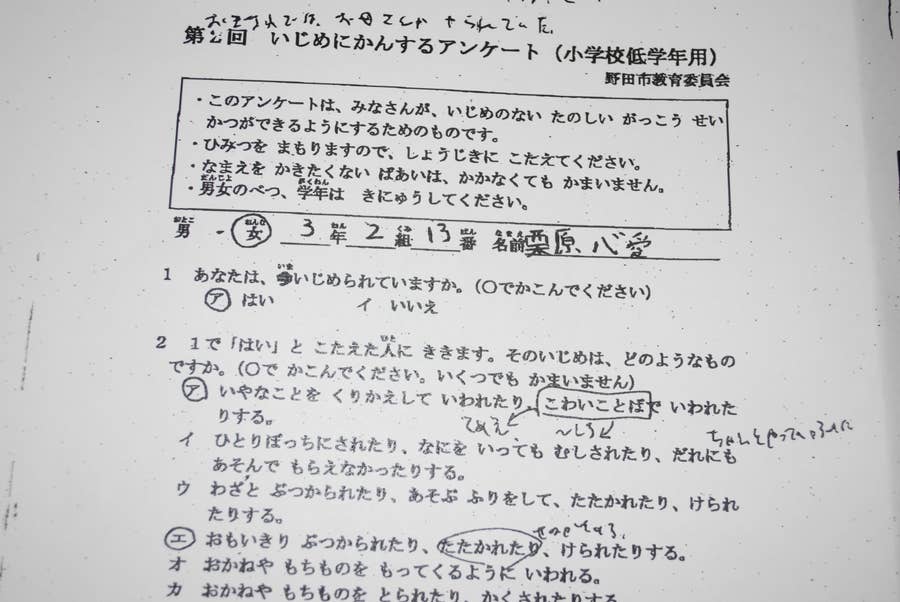 お母さんが やられていた。
第2回 いじめにかんするアンケート（小学校低学年用）
野田市教育委員会
・このアンケートは、みなさんが、いじめのない たのしい がっこう せい
かつができるようにするためのものです。
・ひみつを まもりますので、しょうじきに こたえてください。
・なまえを かきたくない ばあいは、かかなくても かまいません。
・男女のべつ、学年は きにゅうしてください。
男 ・ 女 3年 2組 13番 名前 栗原、心愛
1 あなたは、今いじめられていますか。（○でかこんでください）
ア はい イ いいえ
2 1で「はい」と こたえた人に ききます。そのいじめは、どのようなもの
ですか。（○で かこんでください。いくつでも かまいません）
ア いやなことを くりかえして いわれたり、こわいことばで いわれた
りする。
てめえ 〜しろ
イ ひとりぼっちにされたり、なにを いっても むしされたり、だれにも
あそんで もらえなかったりする。
ウ わざと ぶつかられたり、あそぶ ふりをして、たたかれたり、けられ
たりする。
エ おもいきり ぶつかられたり、たたかれたり、けられたりする。
オ おかねや もちものを もってくるように いわれる。
カ おかねや もちものを とられたり、かくされたりする